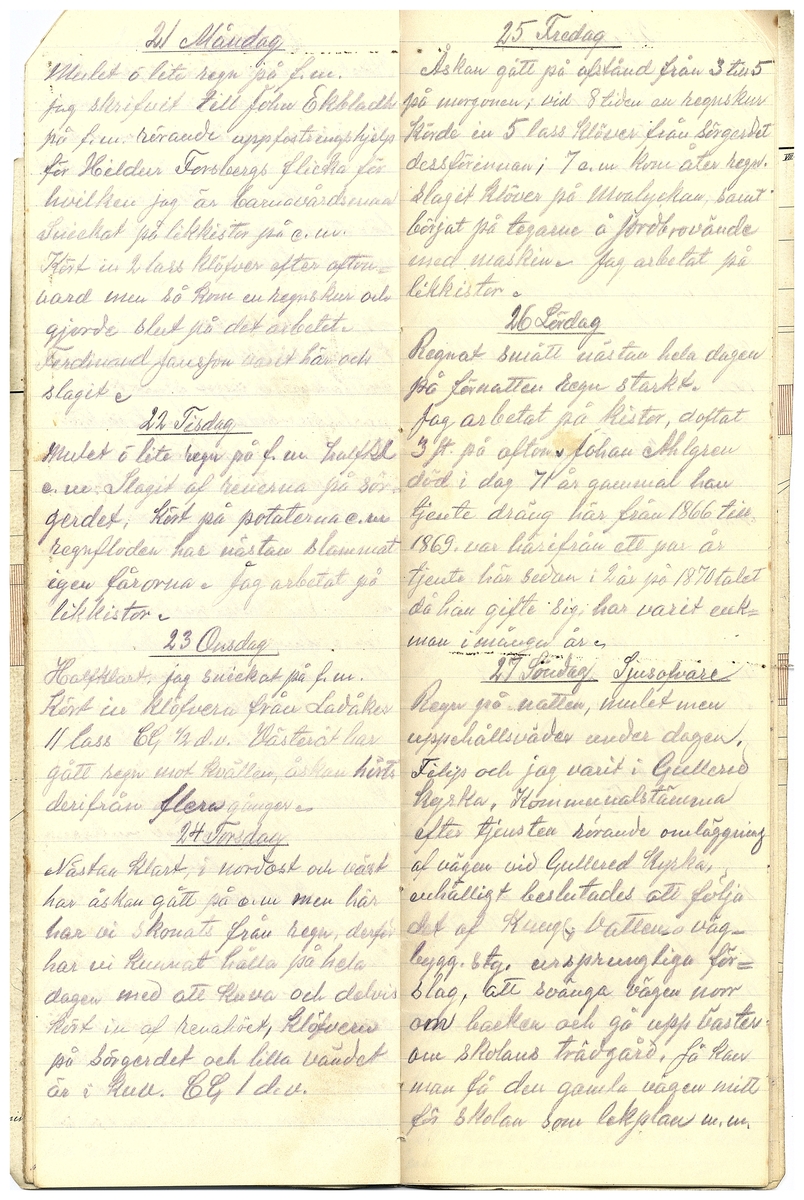 21 Måndag
Mulet ö lite regn på f.m.
jag skrifvit till John Ekbladh
på f.m. rörande uppfostringshjelp
för Hildur Forsbergs flicka för
hvilken jag är barnavårdsman
Snickat på likkistor på e.m.
Kört in 2 lass klöfver efter afton=
vard men så kom en regnskur och
gjorde slut på det arbetet.
Ferdinand Jansson varit här och
slagit.
22 Tisdag
Mulet ö lite regn på f.m. halfkl
e.m. Slagit af renerna på Sör-
gerdet; kört på potaterna e.m
regnfloden har nästan slammat
igen fårorna. Jag arbetat på
likkistor.
23 Onsdag
Halfklart, jag snickat på f.m.
Kört in klöfvern från Ladåker
11 lass CG ½ d.v. Västerut har
gått regn mot kvällen, åskan hörts
derifrån flera gånger.
24 Torsdag
Nästan klart, i nordost och väst
har åskan gått på e.m men här
har vi skonats från regn, derför
har vi kunnat hålla på hela
dagen med att kuva och delvis
kört in af renahöet, klöfvern
på Sörgerdet och lilla vändet
är i kuv. CG 1 d.v.
25 Fredag
Åskan gått på afstånd från 3 till 5
på morgonen; vid 8 tiden en regnskur
Körde in 5 lass klöver från Sörgerdet
dessförinnan; 7 e.m kom åter regn.
Slagit klöver på Moalyckan, samt
börjat på tegarne å Jordbrovände
med maskin. Jag arbetat på
likkistor.
26 Lördag
Regnat smått nästan hela dagen
på förnatten regn starkt.
Jag arbetat på kistor, doftat
3 st. på afton. Johan Ahlgren
död i dag 71 år gammal han
tjente dräng här från 1866 till
1869. var härifrån ett par år
tjente här sedan i 2 år på 1870 talet
då han gifte sig; har varit enk=
man i många år.
27 Söndag Sjusofvare
Regn på natten, mulet men
uppehållsväder under dagen.
Filip och jag varit i Gullered
kyrka. Kommunalstämma
efter tjensten rörande omläggning
af vägen vid Gullered Kyrka,
enhälligt beslutades att följa
det af Kungl. Vatten o väg=
bygg. sty. ursprungliga för=
slag, att svänga vägen norr
om backen och gå upp öster
om skolans trädgård. Så kan
man få den gamla vägen mitt
för skolan som lekplan m.m.